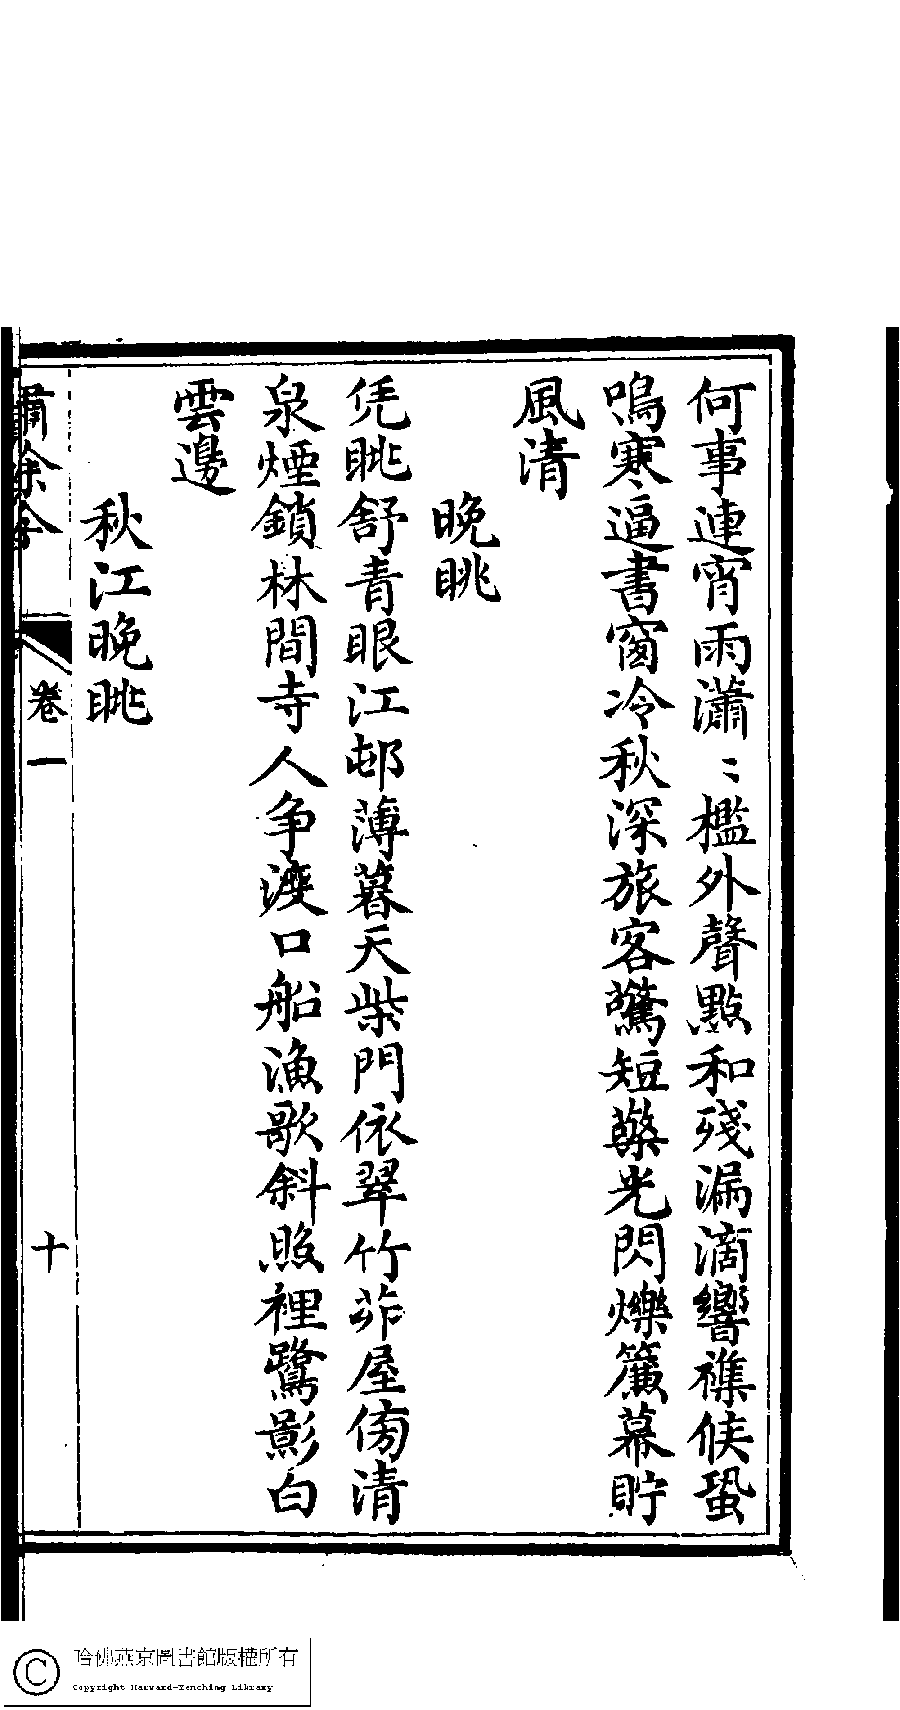 何事連宵雨瀟〻檻外聲點和殘漏滴響襍候蛩
鳴寒逼書窗冷秋深旅客驚短檠光閃爍簾幕貯
風清
晚眺
凭眺舒青眼江邨薄暮天柴門依翠竹茆屋傍清
泉煙鎖林間寺人争渡口船漁歌斜照裡鷺影白
雲邊
秋江晚眺
卷一
十
哈佛燕京圖書館版權所有
Copyright Harvard-Yenching Library